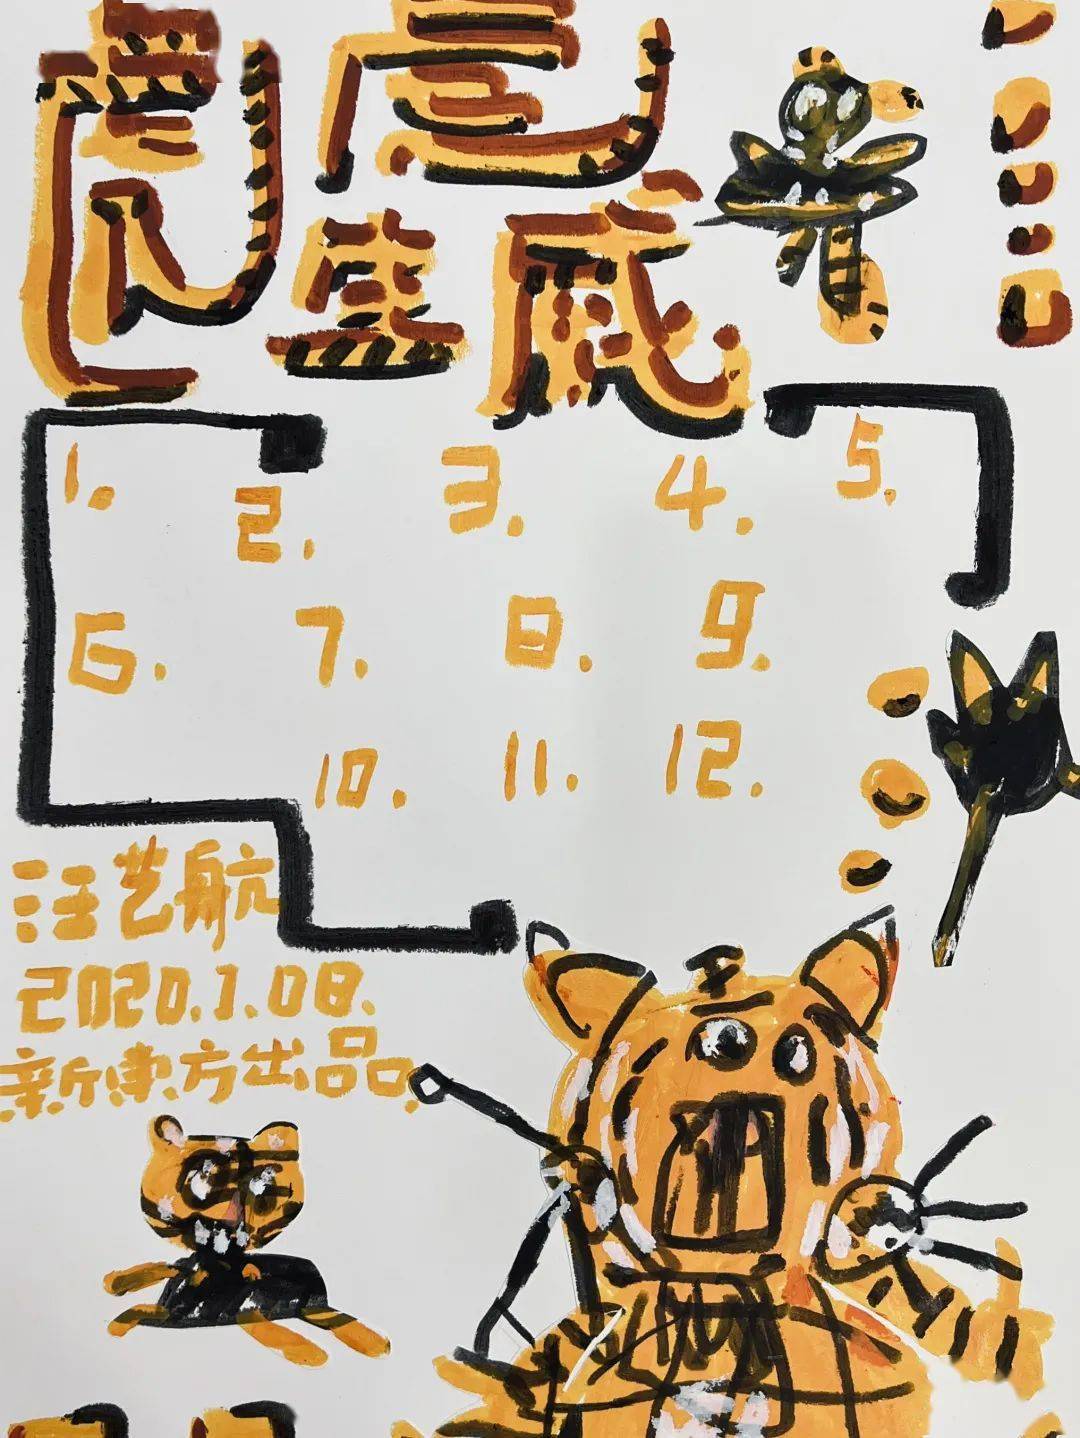 虎虎生威
1. 2. 3. 4. 5.
6. 7. 8. 9.
10. 11. 12.
汪艺航
2020.1.08.
新东方出品.